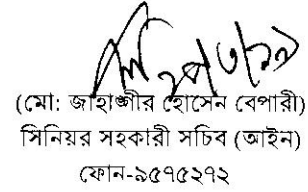 (মো: জাহাঙ্গীর হোসেন বেপারী)
সিনিয়র সহকারী সচিব (আইন)
ফোন-৯৫৭৫২৭২